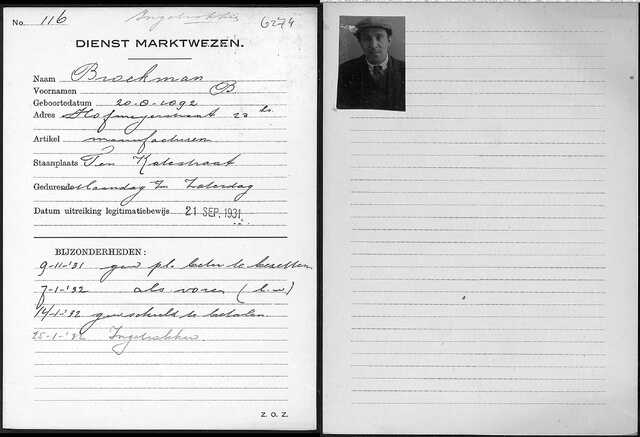 No. 116 Ingetrokken 6274
DIENST MARKTWEZEN.
Naam Brockman
Voornamen B.
Geboortedatum 20-8-1892
Adres Hofmeyerstraat 22 hs
Artikel manufacturen
Staanplaats Ten Katestraat
Gedurende Maandag t/m Zaterdag
Datum uitreiking legitimatiebewijs 21 SEP. 1931
BIJZONDERHEDEN:
9-11-'31 gew. pl. beter te bezetten
7-1-'32 als voren (b.w)
14-1-'32 geen schuld te betalen.
25-1-'32 Ingetrokken.
Z. O. Z.